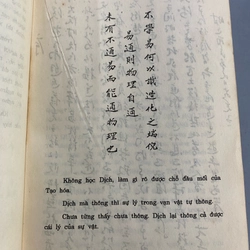 不學易何以識造化之端倪
易通則物理自通
未有不通易而能通物理也
Không học Dịch, làm gì rõ được chỗ đầu mối của
Tạo hóa.
Dịch mà thông thì sự lý trong vạn vật tự thông.
Chưa từng thấy chưa thông. Dịch lại thông cả được
cái lý của sự vật.